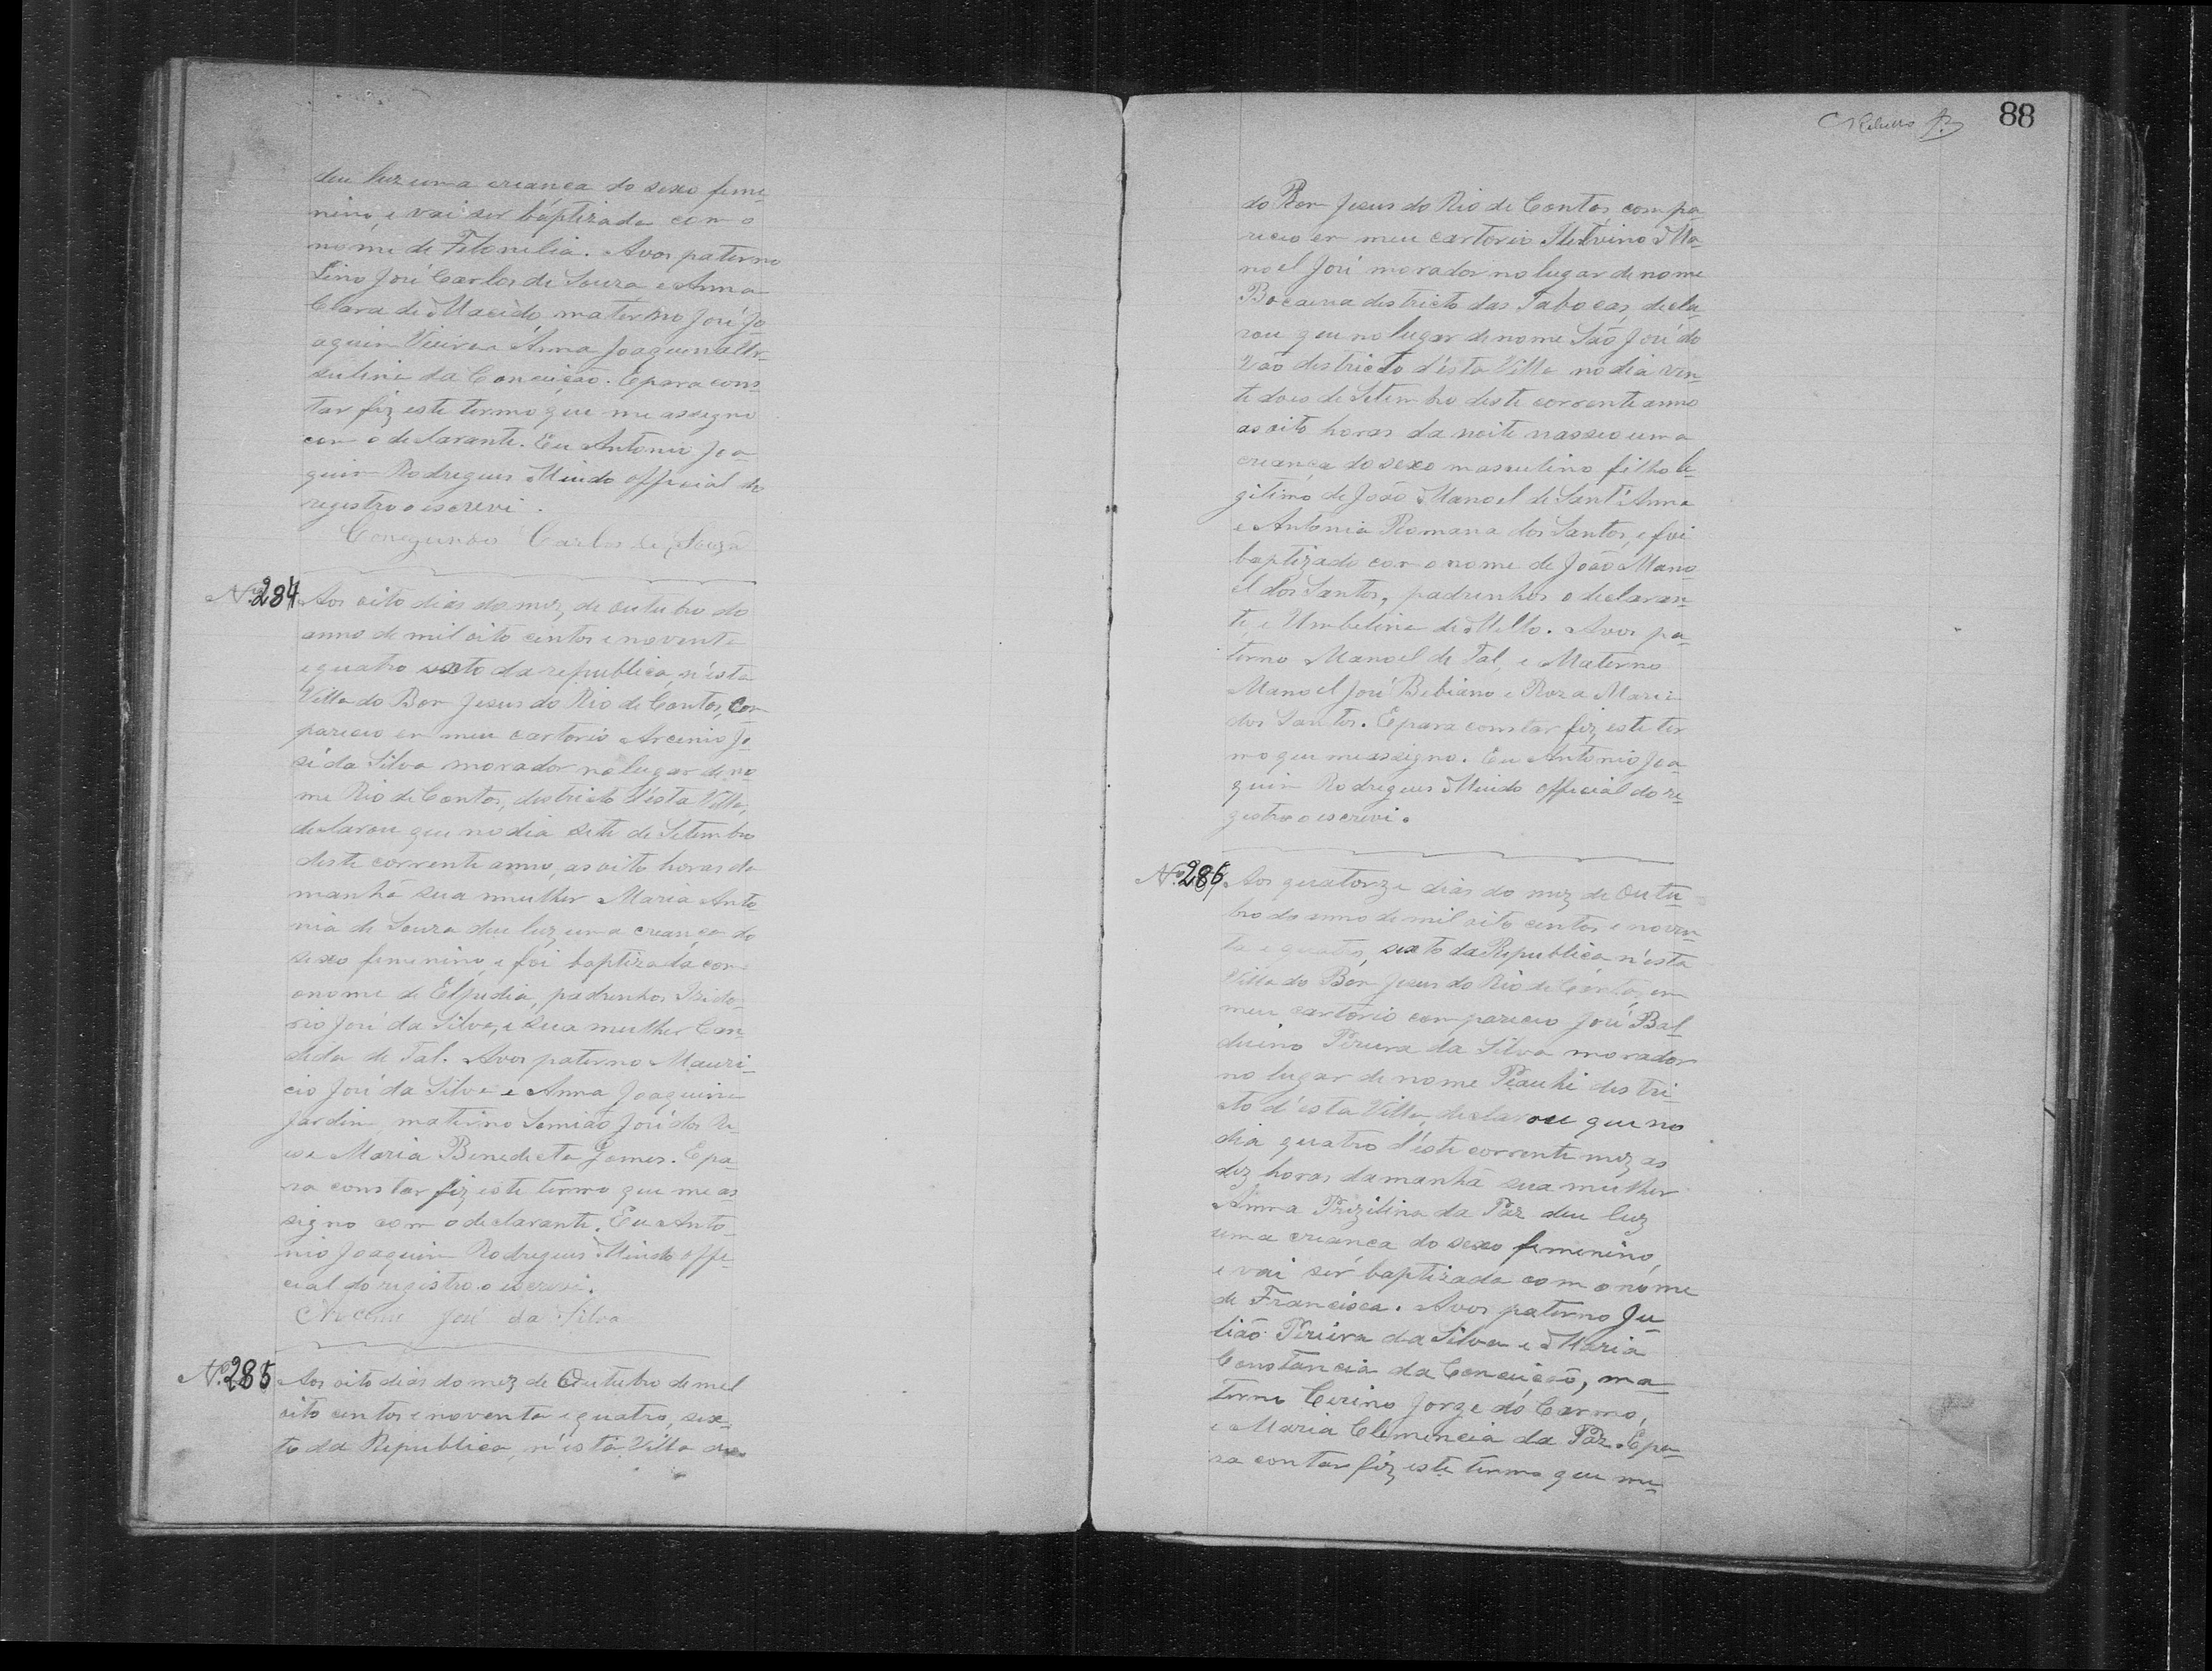 deu luz uma creança do sexo feme-
nino, e vai ser baptizada com o
nome de Filonilia. Avos paterno
Lino José Carlos de Souza e Anna
Clara de Macêdo materno José Jo-
aquim Vieira e Anna Joaquina Ur-
sulina da Conceição. E para cons-
tar fiz este termo que me assigno
com o declarante. Eu Antonio Joa-
quim Rodrigues Mindo official do
registro o escrevi.
Conegundo Carlos de Souza
No. 284 Aos oito dias do mez de outubro do
anno de mil oito centos e noventa
e quatro sexto da republica, n'esta
Villa do Bom Jesus do Rio de Contas, com
pareceo em meu cartorio Arcenio Jo-
sé da Silva morador no lugar de no-
me Rio de Contas, districto d'esta Villa,
declarou que no dia sete de Setembro
deste corrente anno, as oito horas da
manhã sua mulher Maria Anto-
nia de Souza deu luz uma creança do
sexo femenino, e foi baptizada com
o nome de Elpidia, padrinhos Izido-
rio José da Silva, e sua mulher Can-
dida de Tal. Avos paterno Mauri-
cio José da Silva e Anna Joaquina
Jardim, materno Simião José dos Re-
is e Maria Benedicta Gomes. E pa-
ra constar fiz este termo que me as
signo com o declarante. Eu Anto-
nio Joaquim Rodrigues Mindo offi-
cial do registro o escrevi.
Arceni José da Silva
No. 285 Aos oito dias do mez de Outubro de mil
oito centos e noventa e quatro, sex-
to da Republica, n'esta Villa
88
do Bom Jesus do Rio de Contas, compa-
receo em meu cartorio Ma-
noel José morador no lugar de nome
Bocaina districto das Tabocas, decla-
rou que no lugar de nome São José do
Vão districto d'esta Villa no dia vin-
te dois de Setembro deste corrente anno
as oito horas da noite nasceo uma
creança do sexo masculino filho le-
gitimo de João Manoel de Sant'Anna
e Antonia Romana dos Santos, e foi
baptizado com o nome de João Mano
el dos Santos, padrinhos o declaran-
te, e Umbelina de Mello. Avos pa-
terno Manoel de Tal, e Materno
Manoel José Bebiano e Roza Maria
dos Santos. E para constar fiz este ter
mo que me assigno. Eu Antonio Joa-
quim Rodrigues Mindo official do re-
gistro o escrevi.
No. 286 Aos quatorze dias do mez de Outu-
bro do anno de mil oito centos e noven-
ta e quatro, sexto da Republica n'esta
Villa do Bom Jesus do Rio de Contas, em
meu cartorio compareceo José Bal-
duino Pereira da Silva morador
no lugar de nome Piauhi distri-
cto d'esta Villa, declarou que no
dia quatro d'este corrente mez as
dez horas da manhã sua mulher
Anna Prizilina da Paz deu luz
uma creança do sexo femenino,
e vai ser baptizada com o nome
de Francisca. Avos paterno Ju-
lião Pereira da Silva e Maria
Constancia da Conceição, ma-
terno Cerino Jorge do Carmo,
e Maria Clemencia da Paz. E pa-
ra contar fiz este termo que me-